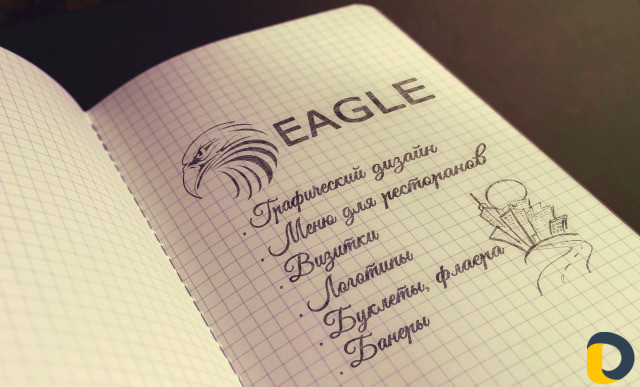 EAGLE
· Графический дизайн
· Меню для ресторанов
· Визитки
· Логотипы
· Буклеты, флаера
· Банеры